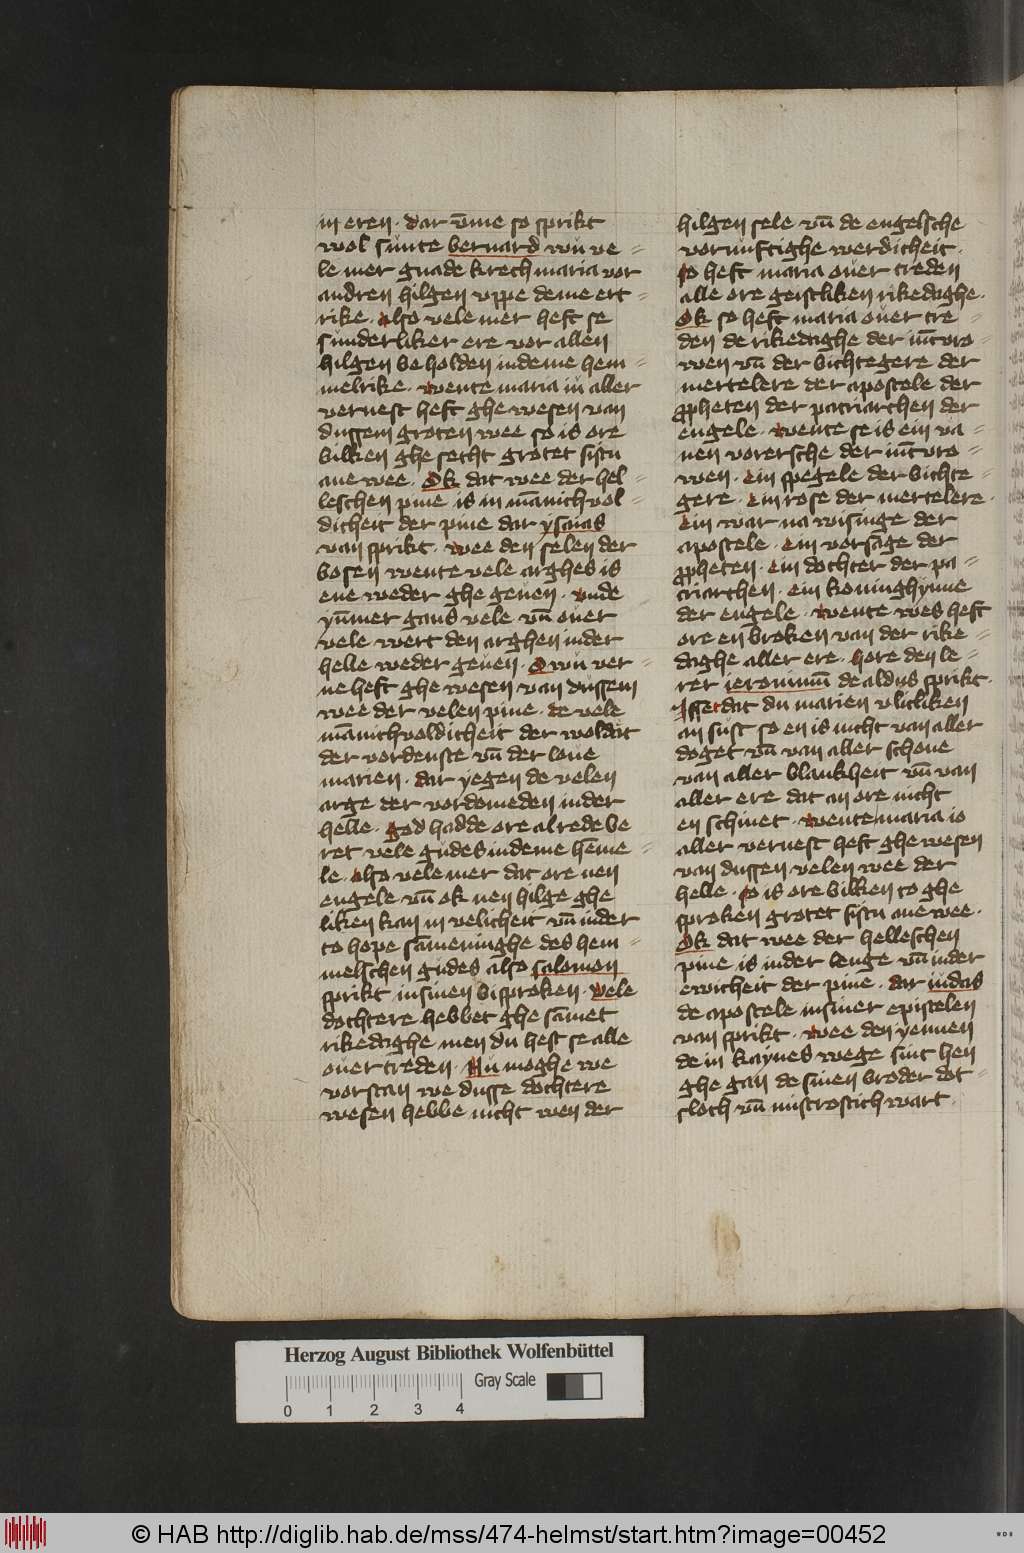 in eren · dar v̄me so sprikt
wol sunte bernard wu ve =
le mer gnade krech maria vor
andren hilgen vppe deme ert =
rike · also vele mer heft se
sunderliker ere vor allen
hilgen beholden in deme hem =
melrike · wente maria iu aller
vernest heft ghe wesen van
dussem groten wee so is ore
billken ghe secht grotet sistu
ane wee · Ok dat wee der hel =
leschen pine is in mānichvol =
dicheit der pine dar ysaias
van sprikt · wee den selen der
bosen wente vele arghes is
ene weder ghe geuen · vnde
yūmer gans vele vn̄ ouer
vele wert den arghen in der
helle weder geuen · O wu ver =
ne heft ghe wesen van dussem
wee der velen pine · de vele
mānichvoldicheit der woldat
der vordenste vn̄ der loue
marien · dar yegen de velen
arge der vordomeden in der
helle · god hadde ore al rede be
ret vele gudes in deme hēme =
le · also vele mer dat ore nen
engele vn̄ ok nen hilge ghe
liken kan in velicheit vn̄ in der
to hope sāmeninghe des hem =
melschen gudes also salomon
sprikt in sinen bisproken · vele
dochtere hebbet ghe sāmet
rikedaghe men du hest se alle
ouer treden · Nu moghe we
vorstan we dusse dochtere
wesen hebbe nicht wen der
hilgen sele vn̄ de engelsche
vornuftighe werdicheit ·
so heft maria ouer treden
alle ore geistliken rikedaghe ·
Ok so heft maria ouer tre =
den de rikedaghe der iūcvro =
wen vn̄ der bichtegere der
mertelere der apostele der
ppheten der patriarchen der
engele · wente se is ein va =
nen vorersche der iūcvro =
wen · ein spegele der bichte =
gere · ein rose der mertelere ·
ein war na wisinge der
apostele · ein vorsage der
ppheten · ein dochter der pa =
triarchen · ein koninghynne
der engele · wente wes heft
ore en broken van der rike =
daghe aller ere · hore den le =
rer ieronimū de aldus sprikt ·
Isset dat du marien vlitliken
an sust so en is nicht van aller
doget vn̄ van aller schone
van aller blankheit vn̄ van
aller ere dat an ore nicht
en schinet · wente maria io
aller vernest heft ghe wesen
van dussen velen wee der
helle · so is ore billken to ghe
sproken grotet sistu ane wee ·
Ok dat wee der helleschen
pine is in der lenge vn̄ in der
ewicheit der pine · dar iudas
de apostele in siner epistelen
van sprikt · wee den yennen
de in kaynes wege sint hen
ghe gan de sinen broder dot =
sloch vn̄ mistrostich wart ·
Herzog August Bibliothek Wolfenbüttel
Gray Scale
0 1 2 3 4
© HAB http://diglib.hab.de/mss/474-helmst/start.htm?image=00452
WDB